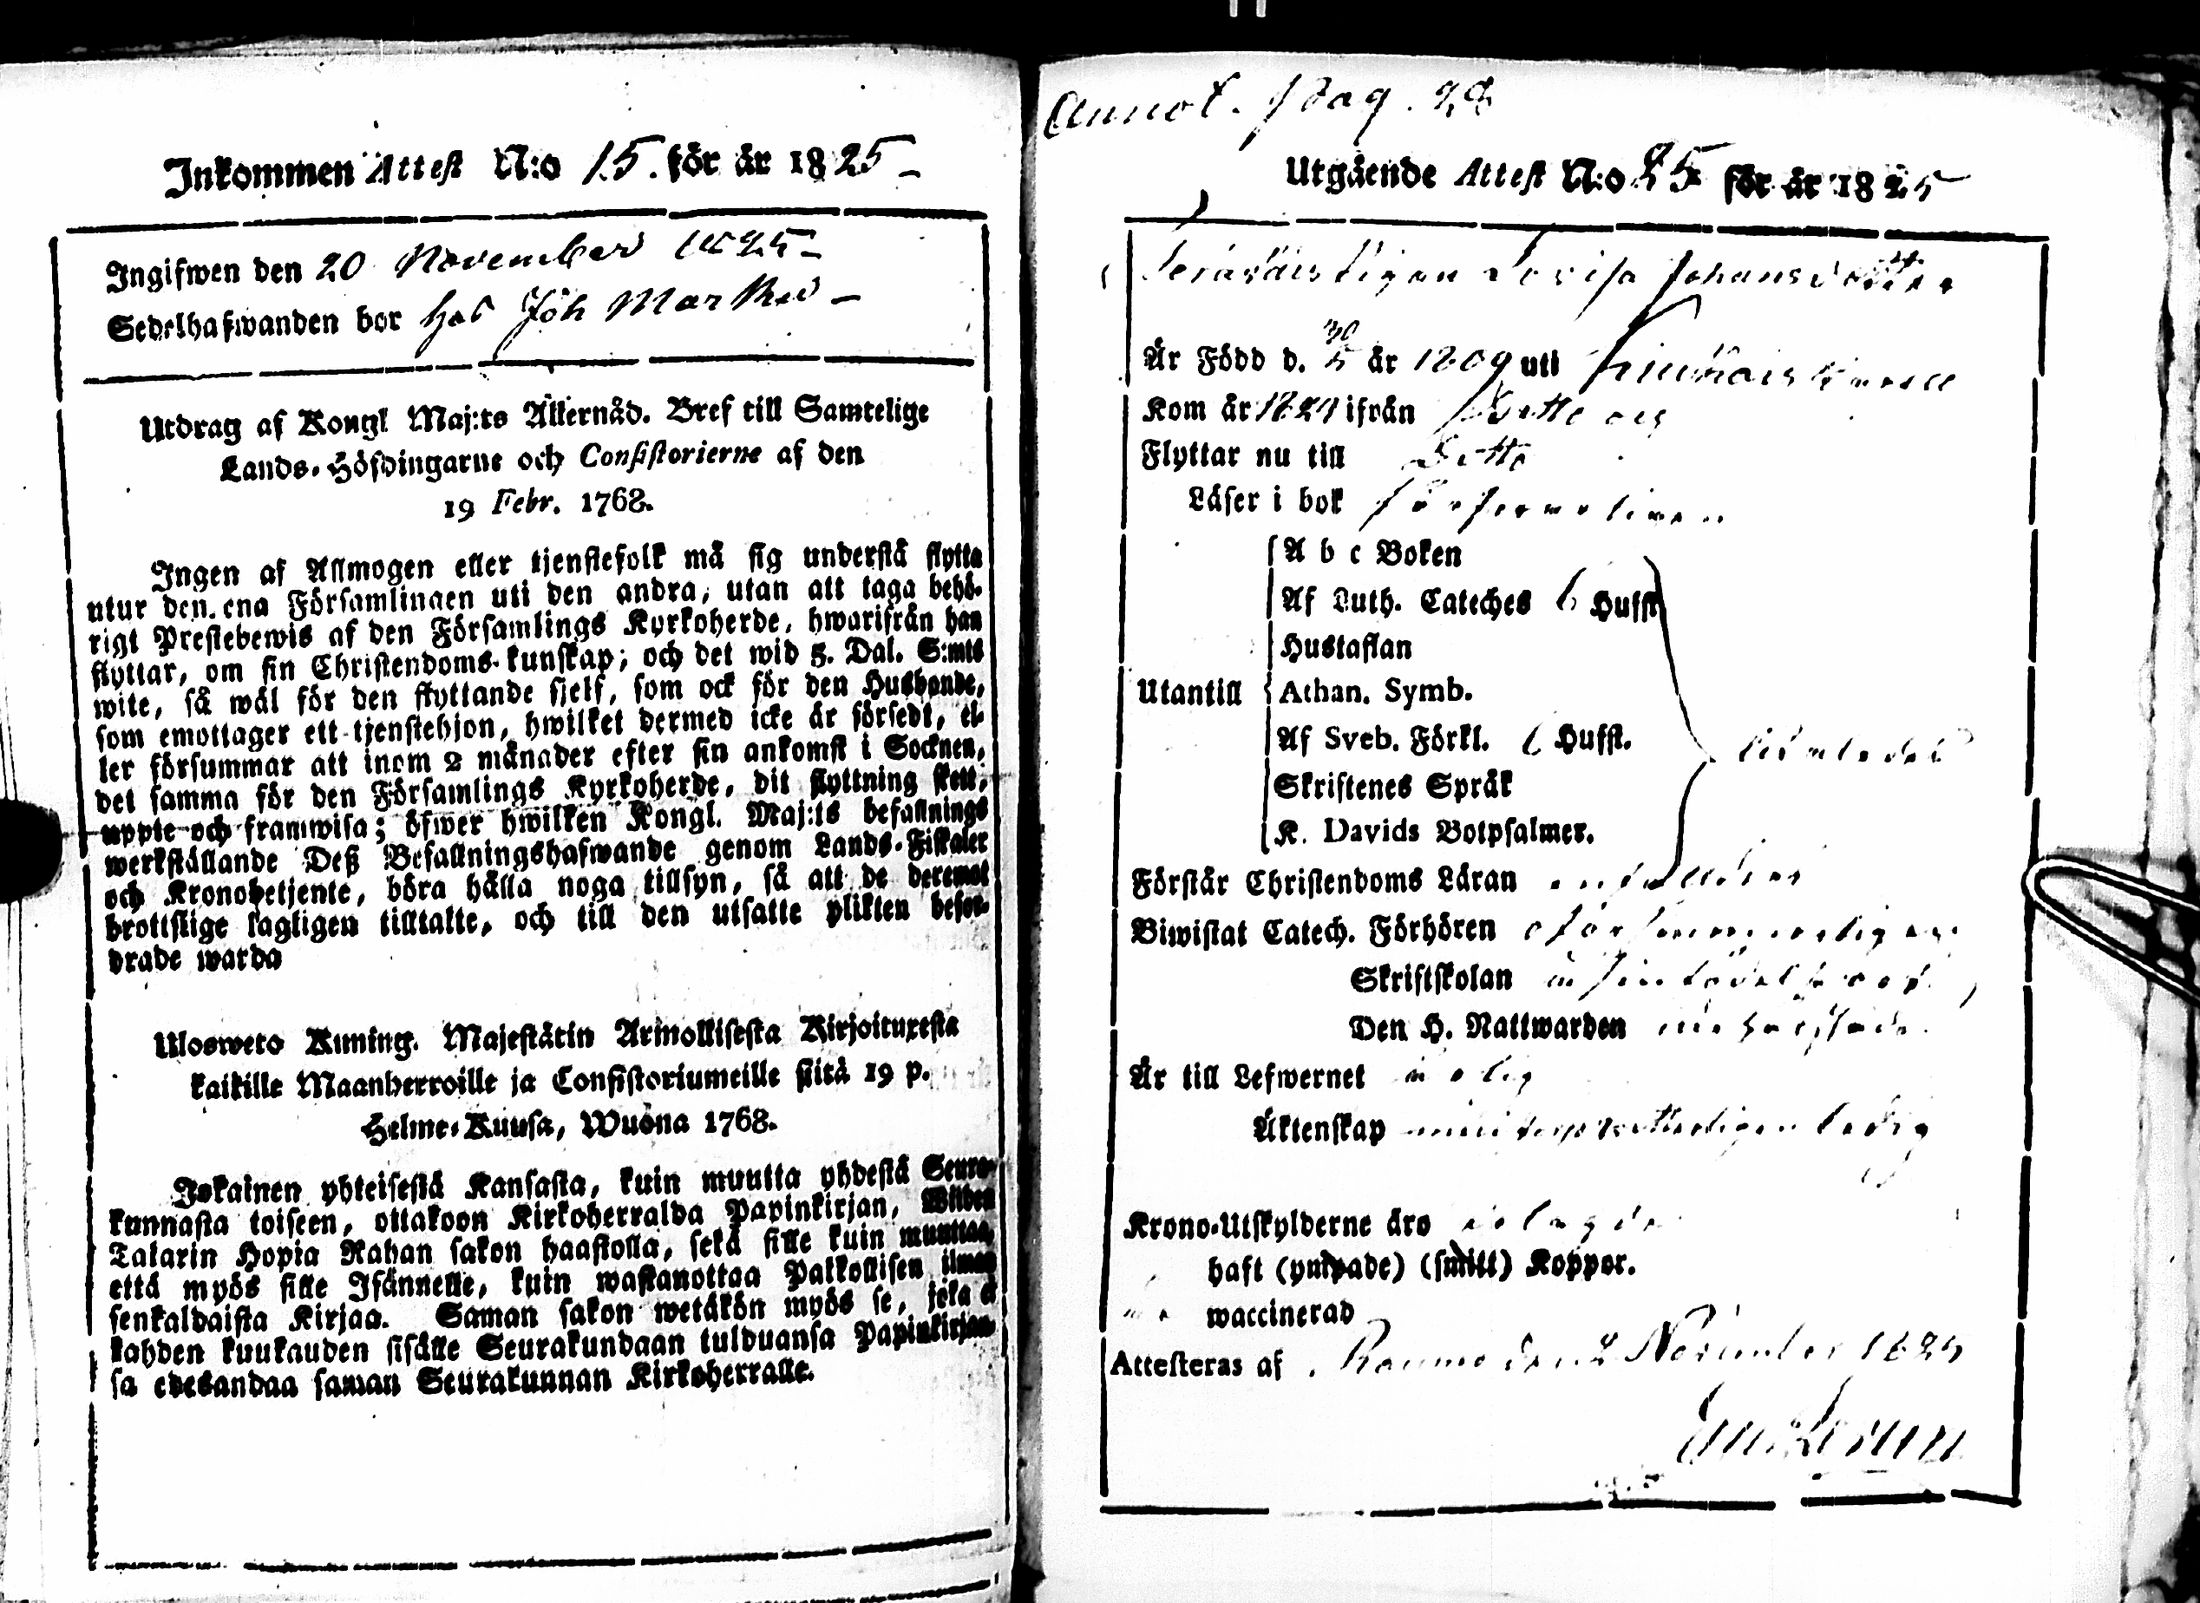 Inkommen Attest N:o 15. för år 1825 –
Ingifwen den 20 November 1825 –
Sedelhafwanden bor hos Joh Marked –
Utdrag af Kongl Maj:ts Allernåd. Bref till Samtelige
Lands-Höfdingarne och Consistorierne af den
19 Febr. 1768.
Ingen af Allmogen eller tjenstefolk må sig understå flytta
utur den ena Församlingen uti den andra, utan att taga behö-
rigt Prestebewis af den Församlings Kyrkoherde, hwarifrån han
flyttar, om sin Christendoms-kunskap; och det wid 5. Dal. S:mts
wite, så wäl för den flyttande sjelf, som ock för den Husbonde,
som emottager ett tjenstehjon, hwilket dermed icke är försedt, el-
ler försummar att inom 2 månader efter sin ankomst i Socknen,
det samma för den Församlings Kyrkoherde, dit flyttning skett,
uppte och framwisa; öfwer hwilken Kongl. Maj:ts befallnings
werkställande Deß Befallningshafwande genom Lands-Fiskaler
och Kronobetjente, böra hålla noga tillsyn, så att de deremot
brottslige lagligen tilltalte, och till den utsatte plikten befor-
drade warda
Ulosweto Kuning. Majestätin Armollisesta Kirjoituxesta
kaikille Maanherroille ja Consistoriumeille siitä 19 p.
Helme-Kuusa, Wuona 1768.
Jokainen yhteisestä Kansasta, kuin muutta yhdestä Seura-
kunnasta toiseen, ottakoon Kirkoherralda Papinkirjan, Wiiden
Talarin Hopia Rahan sakon haastolla, sekä sille kuin muuttaa,
että myös sille Isännelle, kuin wastanottaa Palkollisen ilman
senkaldaista Kirjaa. Saman sakon wetäkön myös se, joka ei
kahden kuukauden sisälle Seurakundaan tulduansa Papinkirjan-
sa edesandaa saman Seurakunnan Kirkoherralle.
Annot. pag. 28
Utgående Attest N:o 25 för år 1825
Pigan Lovisa Johansdotter
Är Född d. 30/5 år 1809 uti
Kom år 1824 ifrån Ditto
Flyttar nu till Ditto
Läser i bok försvarligen
A b c Boken
Af Luth. Cateches 6 Hufst.
Hustaflan
Utantill Athan. Symb.
Af Sveb. Förkl. 6 Hufst.
Skriftenes Språk
K. Davids Botpsalmer.
Förstår Christendoms Läran
Biwistat Catech. Förhören
Skriftskolan
Den H. Nattwarden
Är till Lefwernet
Äktenskap ledig
Krono-Utskylderne äro
haft (ympade) (smitt) Koppor.
waccinerad
Attesteras af Raumo den 2 November 1825